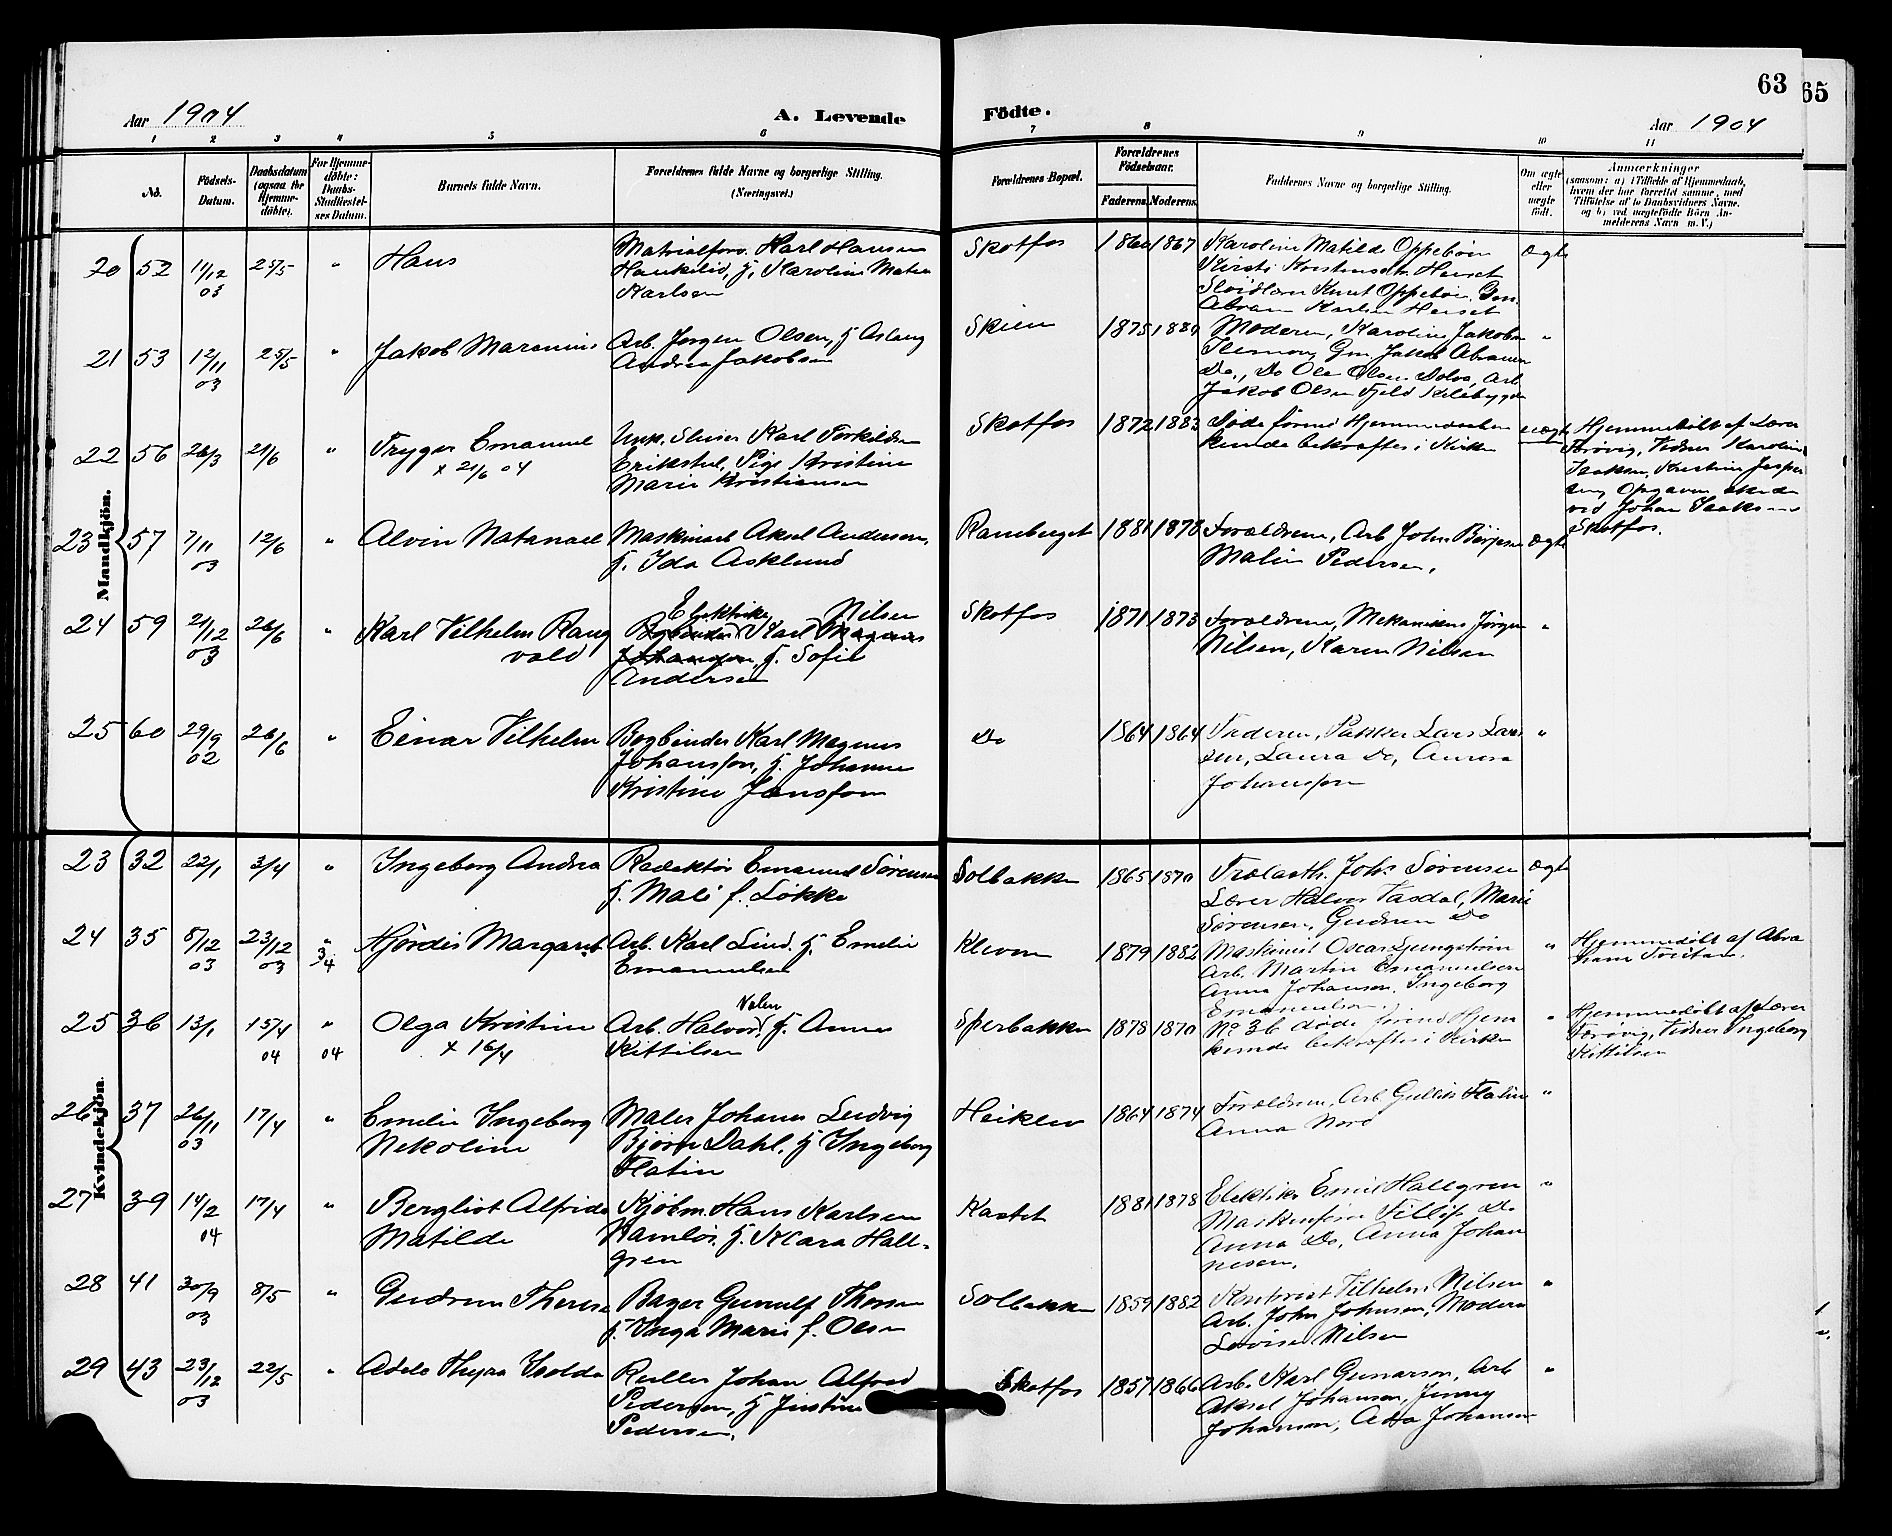 63
65
Aar 1904
A. Levende
Födte.
Aar 1904
1 2 3 4 5 6 7 8 9 10 11
No.
Födsels-
Datum.
Daabsdatum
(ogsaa for
Hjemme-
döbte).
For Hjemme-
döbte:
Daabs-
Stadfæstel-
ses Datum.
Barnets fulde Navn.
Forældrenes fulde Navne og borgerlige Stilling.
(Næringsvei.)
Forældrenes Bopæl.
Forældrenes
Födselsaar.
Faderens.
Moderens.
Faddernes Navne og borgerlige Stilling.
Om ægte
eller
uægte
født.
Anmærkninger
Mandkjön.
20 52 11/12 03 25/5 " Hans
Matrialforv. Karl Hansen
Haukelid, H. Karoline
Karlsen
Skotfos 1860 1867
Karoline Matilde Oppebøen
Kirsti Kristensdtr. Heiset
Knut Oppebøen
Karlsen Heiset
ægte
21 53 12/11 03 25/5 " Jakob Marenius
Arb. Jørgen Olsen, H Aslaug
Andrea Jakobsen
Skien 1875 1880
Moderen, Karoline Jakobsen
Gm. Jakob Abramsen
Do., Do Ole Olsen Dolva, Arb.
Jakob Olsen Fjeld Kilebygden
"
22 56 26/3 21/6 " Trygve Emanuel
x 21/6 04
Unk. Sliber Karl Torkildsen
Pige Kristine
Marie Kristiansen
Skotfos 1872 1883
Døde førend Hjemmedaaben
kunde bekræftes i Kirken
uægte
Hjemmedøbt af Lærer
Førøvig, Vidner Karoline
Isaksen, Kristine Jesper
sen, Opgaven skede
ved Johan Isaksen
Skotfos.
23 57 7/11 03 12/6 " Alvin Natanael
Maskinarb Aksel Andersen,
H. Ida Asklund
Ramberget 1881 1878
Forældrene, Arb John Børjesen
Malin Pedersen,
ægte
24 59 21/12 03 26/6 " Karl Vilhelm Rang
vald
Elektriker Nilsen
Bogbinder Karl Magnus
Johansson, H. Sofie
Andersen
Skotfos 1871 1873
Forældrene, Mekanikus Jørgen
Nilsen, Karen Nilsen
"
25 60 29/9 02 26/6 " Einar Vilhelm
Bogbinder Karl Magnus
Johansson, H. Johanne
Kristine Jonsson
Do 1864 1864
Faderen, Pakker Lars Lar
sen, Laura Do, Aurora
Johansson
"
Kvindekjön.
23 32 22/1 3/4 " Ingeborg Andrea
Redaktør Emanuel Sørensen
H. Mali f. Løkke
Solbakken 1865 1870
Trælasth. Johs Sørensen
Lærer Halvor Vasdal, Marie
Sørensen, Gudrun Do
ægte
24 35 8/12 03 23/12 03 " 3/4 Hjördis Margaret
Arb. Karl Lind, H. Emelie
Emanuelsen
Kleven 1879 1882
Maskinist Oscar Ljungstrøm
Arb. Martin Emanuelsen
Anna Johansen, Ingeborg
Emanuelsen
"
Hjemmedøbt af Abra
ham
25 36 13/1 15/1 04 " 04 Olga Kristine
x 16/4
Valen
Arb. Halvor, H. Anne
Kittilsen
Sperbakken 1878 1870
No 36 døde førend Hjem
kunde bekræftes i Kirken
"
Hjemmedøbt af Lærer
Førøvig, Vidner Ingeborg
Kittilsen
26 37 26/11 03 17/4 " Emelie Ingeborg
Nekoline
Maler Johannes Ludvig
Bjørn Dahl, H Ingeborg
Flatin
Heiklev 1864 1874
Forældrene, Arb. Gullik Flatin
Anna Nord
"
27 39 14/2 04 17/4 " Bergliot Alfrida
Matilde
Kjøbm. Hans Karlsen
H. Klara Hall-
gren
Kastet 1881 1878
Elektiker Emil Hallgren
Maskinfører Fillip Do
Anna Do, Anna Johan
nesen,
"
28 41 30/9 03 8/5 " Gudrun Therese
Bager Gunulf Thorsen
H. Inga Marie f. Olsen
Solbakken 1859 1882
Kontorist Vilhelm Nilsen
Arb. John Johnsen, Moderen
Lovise Nilsen
"
29 43 23/12 03 22/5 " Adele Thyra Isolda
Ruller Johan Alfred
Pedersen, H Justine
Pedersen.
Skotfos 1857 1866
Arb. Karl Gunarson, Arb
Aksel Johansen, Jenny
Johansen, Johansen
"